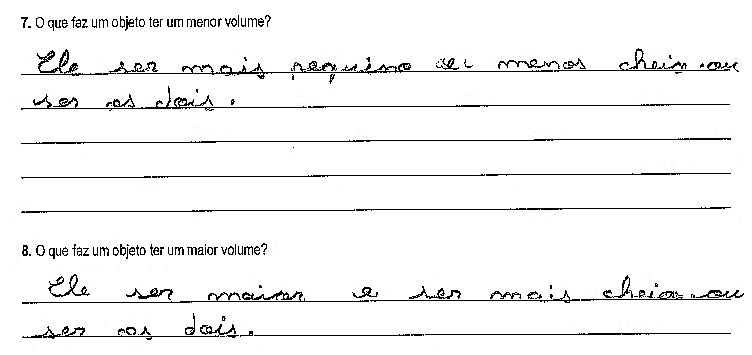 7. O que faz um objeto ter um menor volume?
Ele ser mais pequino ou menos cheio ou
ser os dois.
8. O que faz um objeto ter um maior volume?
Ele ser maior e ser mais cheio ou
ser os dois.